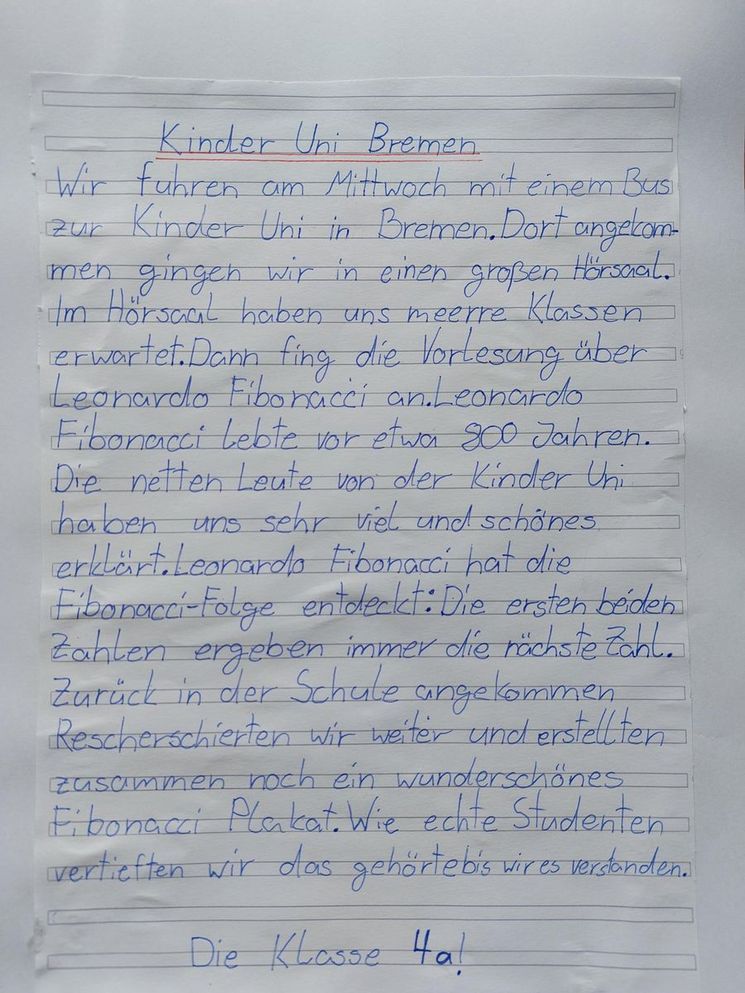 Kinder Uni Bremen
Wir fuhren am Mittwoch mit einem Bus
zur Kinder Uni in Bremen. Dort angekom-
men gingen wir in einen großen Hörsaal.
Im Hörsaal haben uns meerre Klassen
erwartet. Dann fing die Vorlesung über
Leonardo Fibonacci an. Leonardo
Fibonacci lebte vor etwa 800 Jahren.
Die netten Leute von der Kinder Uni
haben uns sehr viel und schönes
erklärt. Leonardo Fibonacci hat die
Fibonacci-Folge entdeckt: Die ersten beiden
Zahlen ergeben immer die nächste Zahl.
Zurück in der Schule angekommen
Rescherschierten wir weiter und erstellten
zusammen noch ein wunderschönes
Fibonacci Plakat. Wie echte Studenten
vertieften wir das gehörte bis wir es verstanden.
Die Klasse 4a!